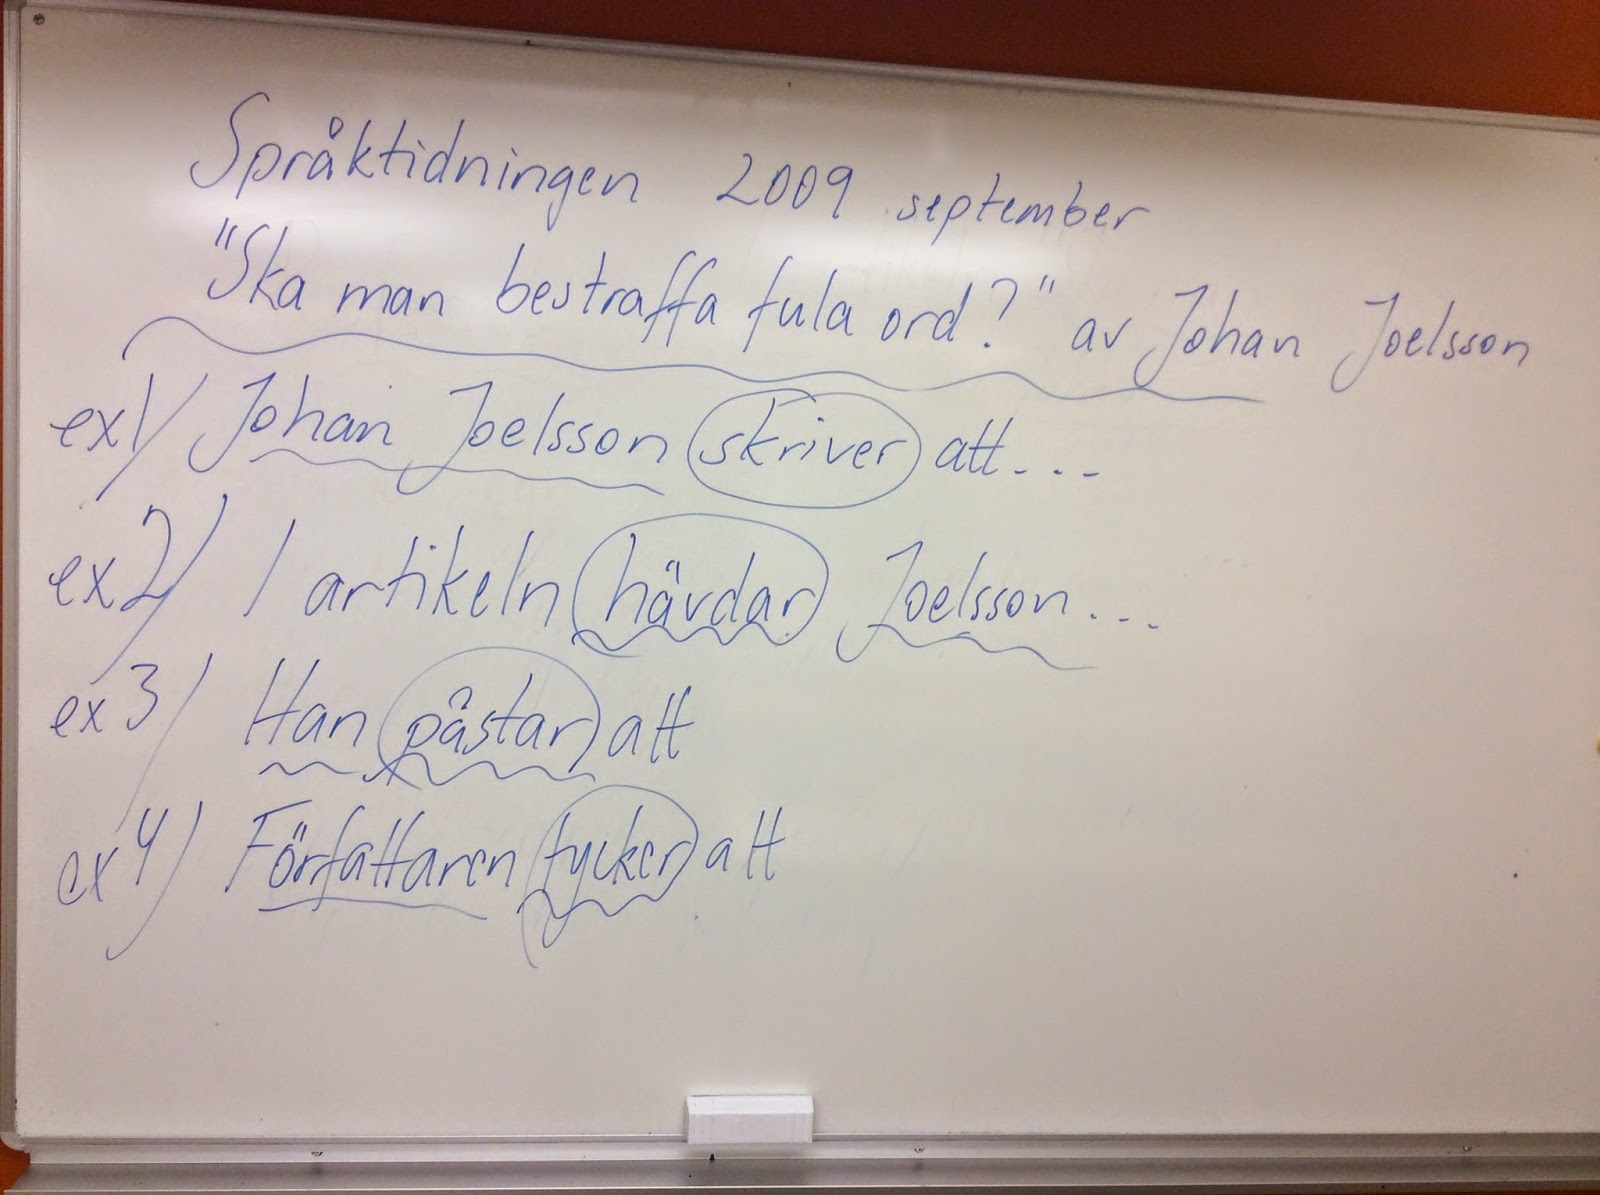 Språktidningen 2009 september
"Ska man bestraffa fula ord?" av Johan Joelsson
ex1/ Johan Joelsson skriver att...
ex2/ I artikeln hävdar Joelsson...
ex3/ Han påstar att
ex4/ Författaren tycker att